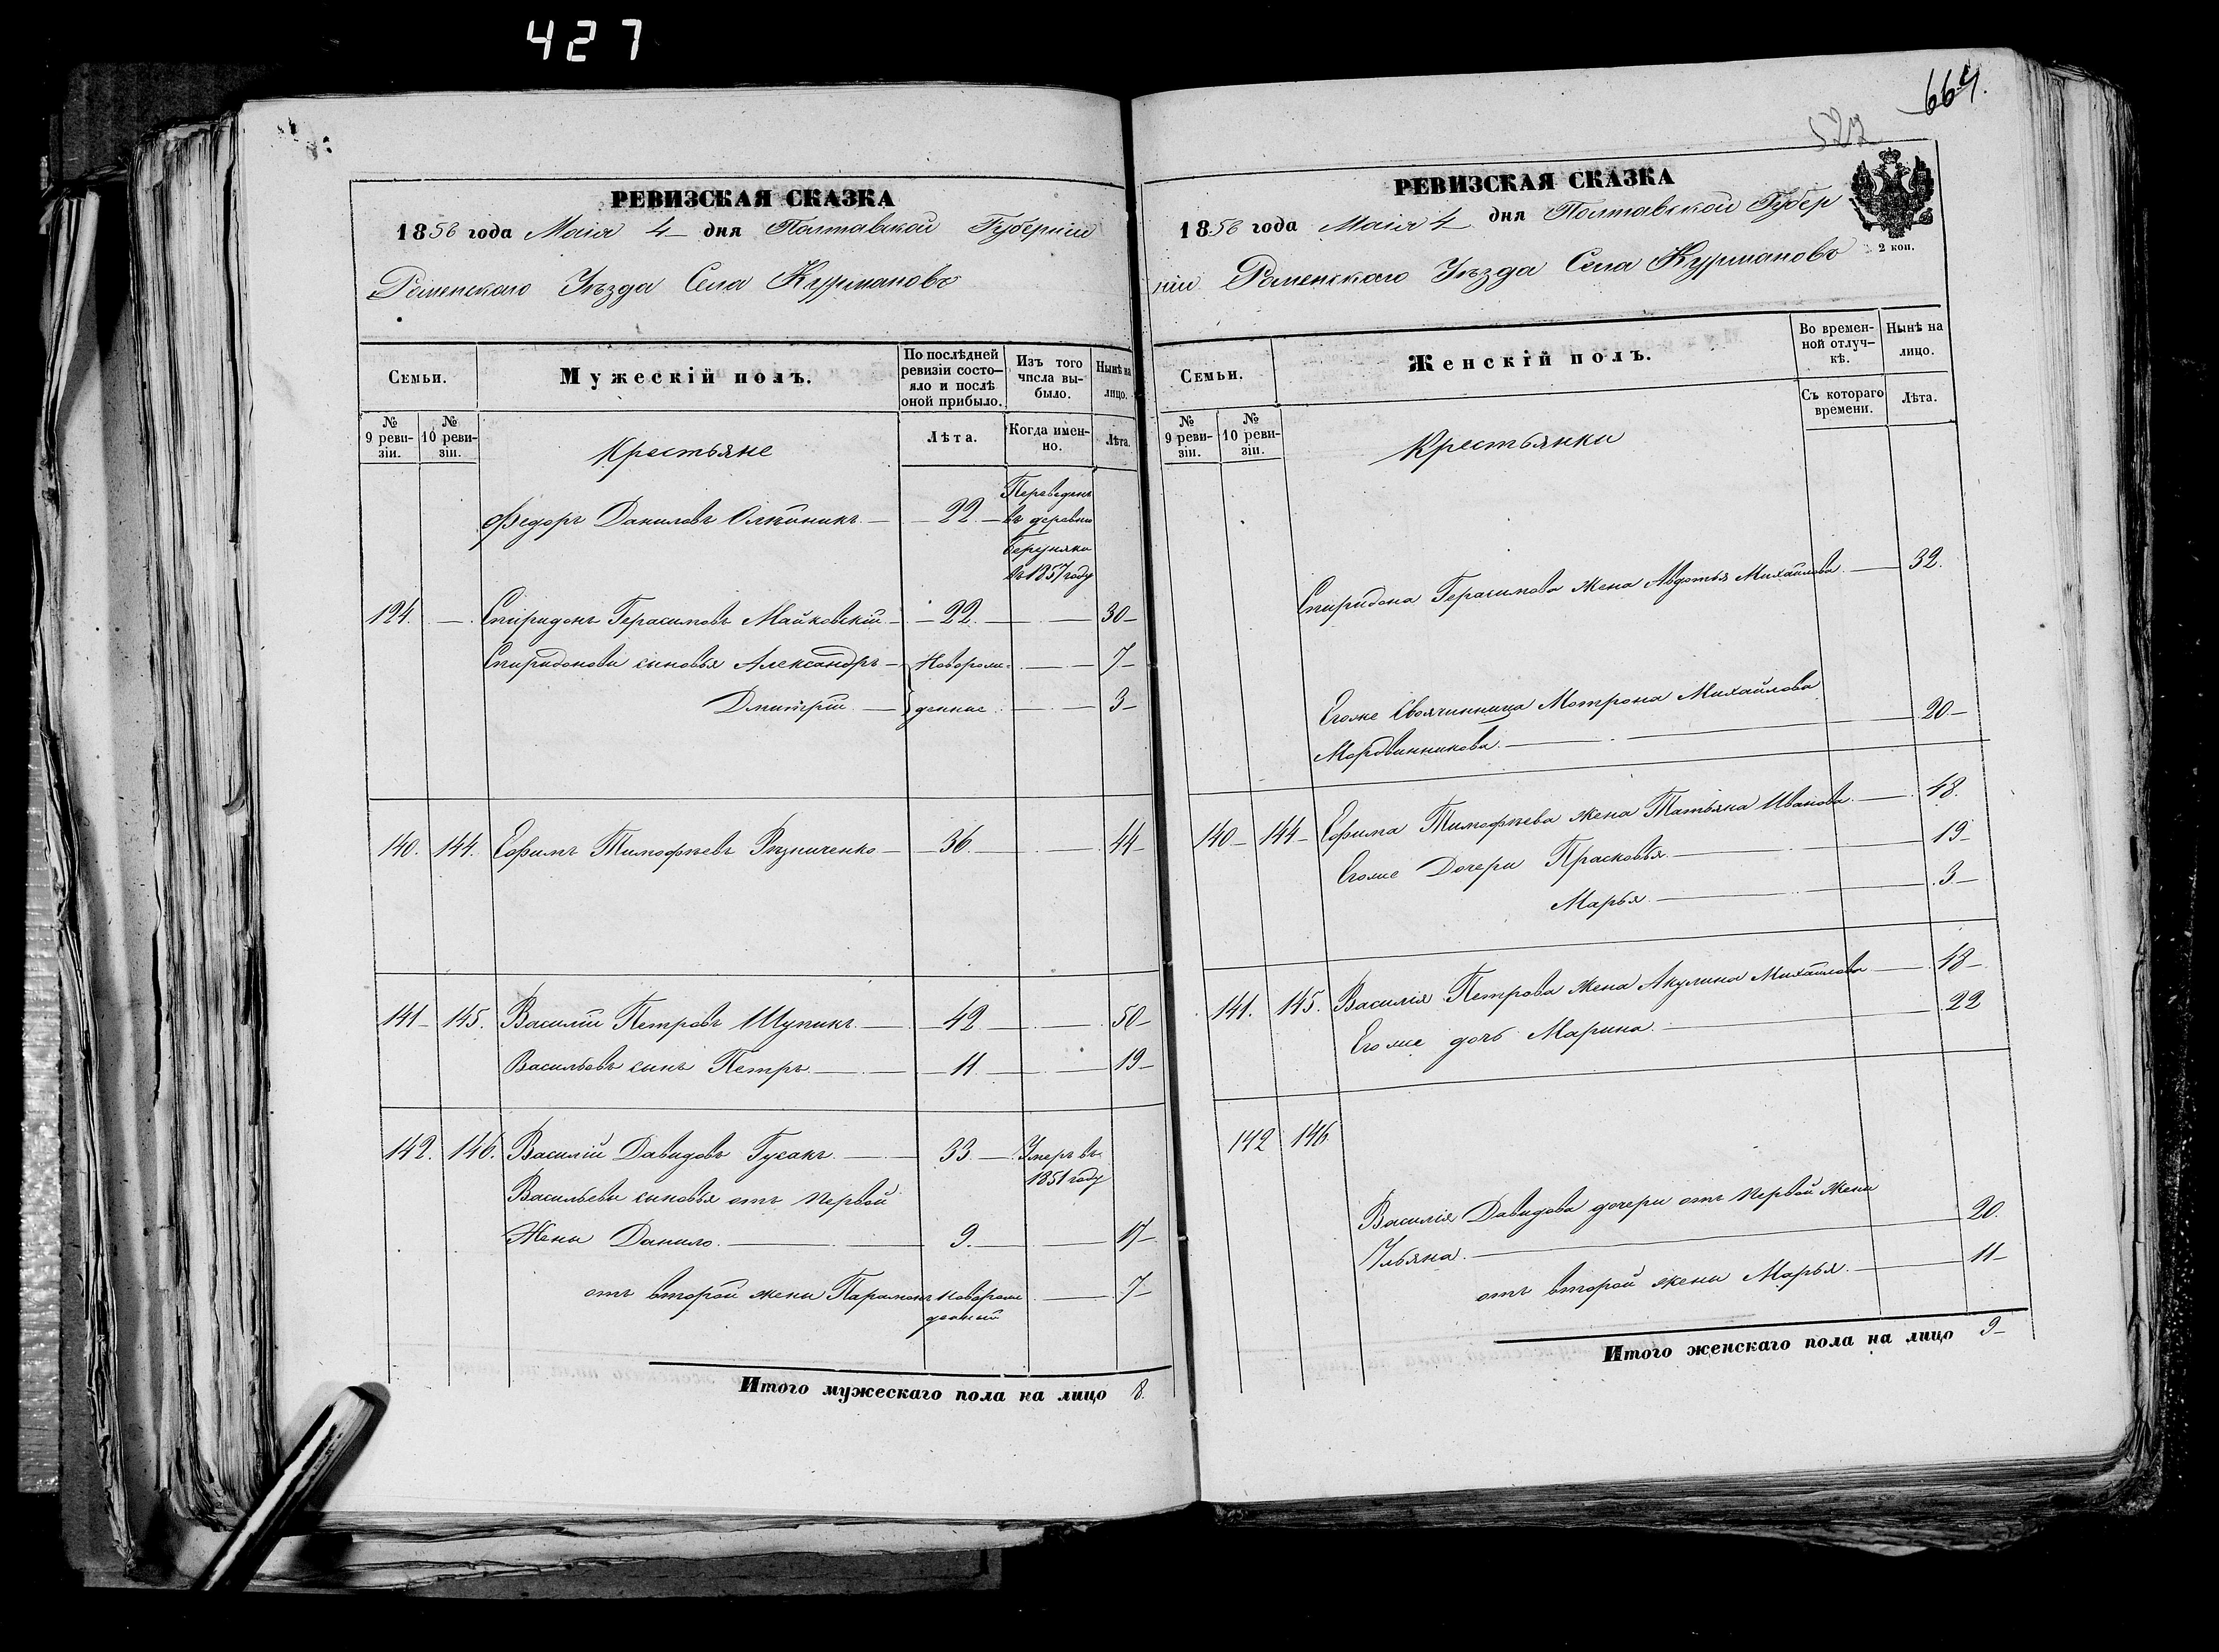 427
664.
522
РЕВИЗСКАЯ СКАЗКА
1858 года Маія 4 дня Полтавской Губерніи
Роменскаго Уѣзда Села Курмановъ
Семьи.
Мужескій полъ.
По послѣдней ревизіи состояло и послѣ оной прибыло.
Изъ того числа выбыло.
Нынѣ на лицо.
№ 9 ревизіи.
№ 10 ревизіи.
Крестьяне
Лѣта.
Когда именно.
Лѣта.
Федоръ Даниловъ Олѣйникъ 22 Переведенъ въ деревню
въ 1857 году
124. Спиридонъ Герасимовъ Майковскій 22 30
Спиридоновы сыновья Александръ Новорож- 7
Дмитрій денные 3
140. 144. Ефимъ Тимофѣевъ Рѣзниченко 36 44
141 145. Василій Петровъ Шупикъ 42 50
Васильевъ сынъ Петръ 11 19
142. 146. Василій Давидовъ Гусакъ 33 Умеръ въ 1851 году
Васильевы сыновья отъ первой
Жены Данило 9 17
отъ второй жены Парамонъ новорож денный 7
Итого мужескаго пола на лицо 8.
РЕВИЗСКАЯ СКАЗКА
1858 года Маія 4 дня Полтавской Губер
ніи Роменскаго Уѣзда Села Курмановъ
2 коп.
Семьи.
Женскій полъ.
Во временной отлучкѣ.
Нынѣ на лицо.
№ 9 ревизіи.
№ 10 ревизіи.
Крестьянки
Съ котораго времени.
Лѣта.
Спиридона Герасимова жена Авдотья Михайлова 32.
Егоже Своячинница Мотрона Михайлова
20
140 144 Ефима Тимофѣева жена Татьяна Иванова 48.
Егоже Дочери Прасковья 19
Марья 3
141. 145. Василія Петрова жена Акулина Михайлова 48
Егоже дочь Марина 22
142 146
Василія Давидова дочери отъ первой жены
Ульяна 20.
отъ второй жены Марья 11
Итого женскаго пола на лицо 9